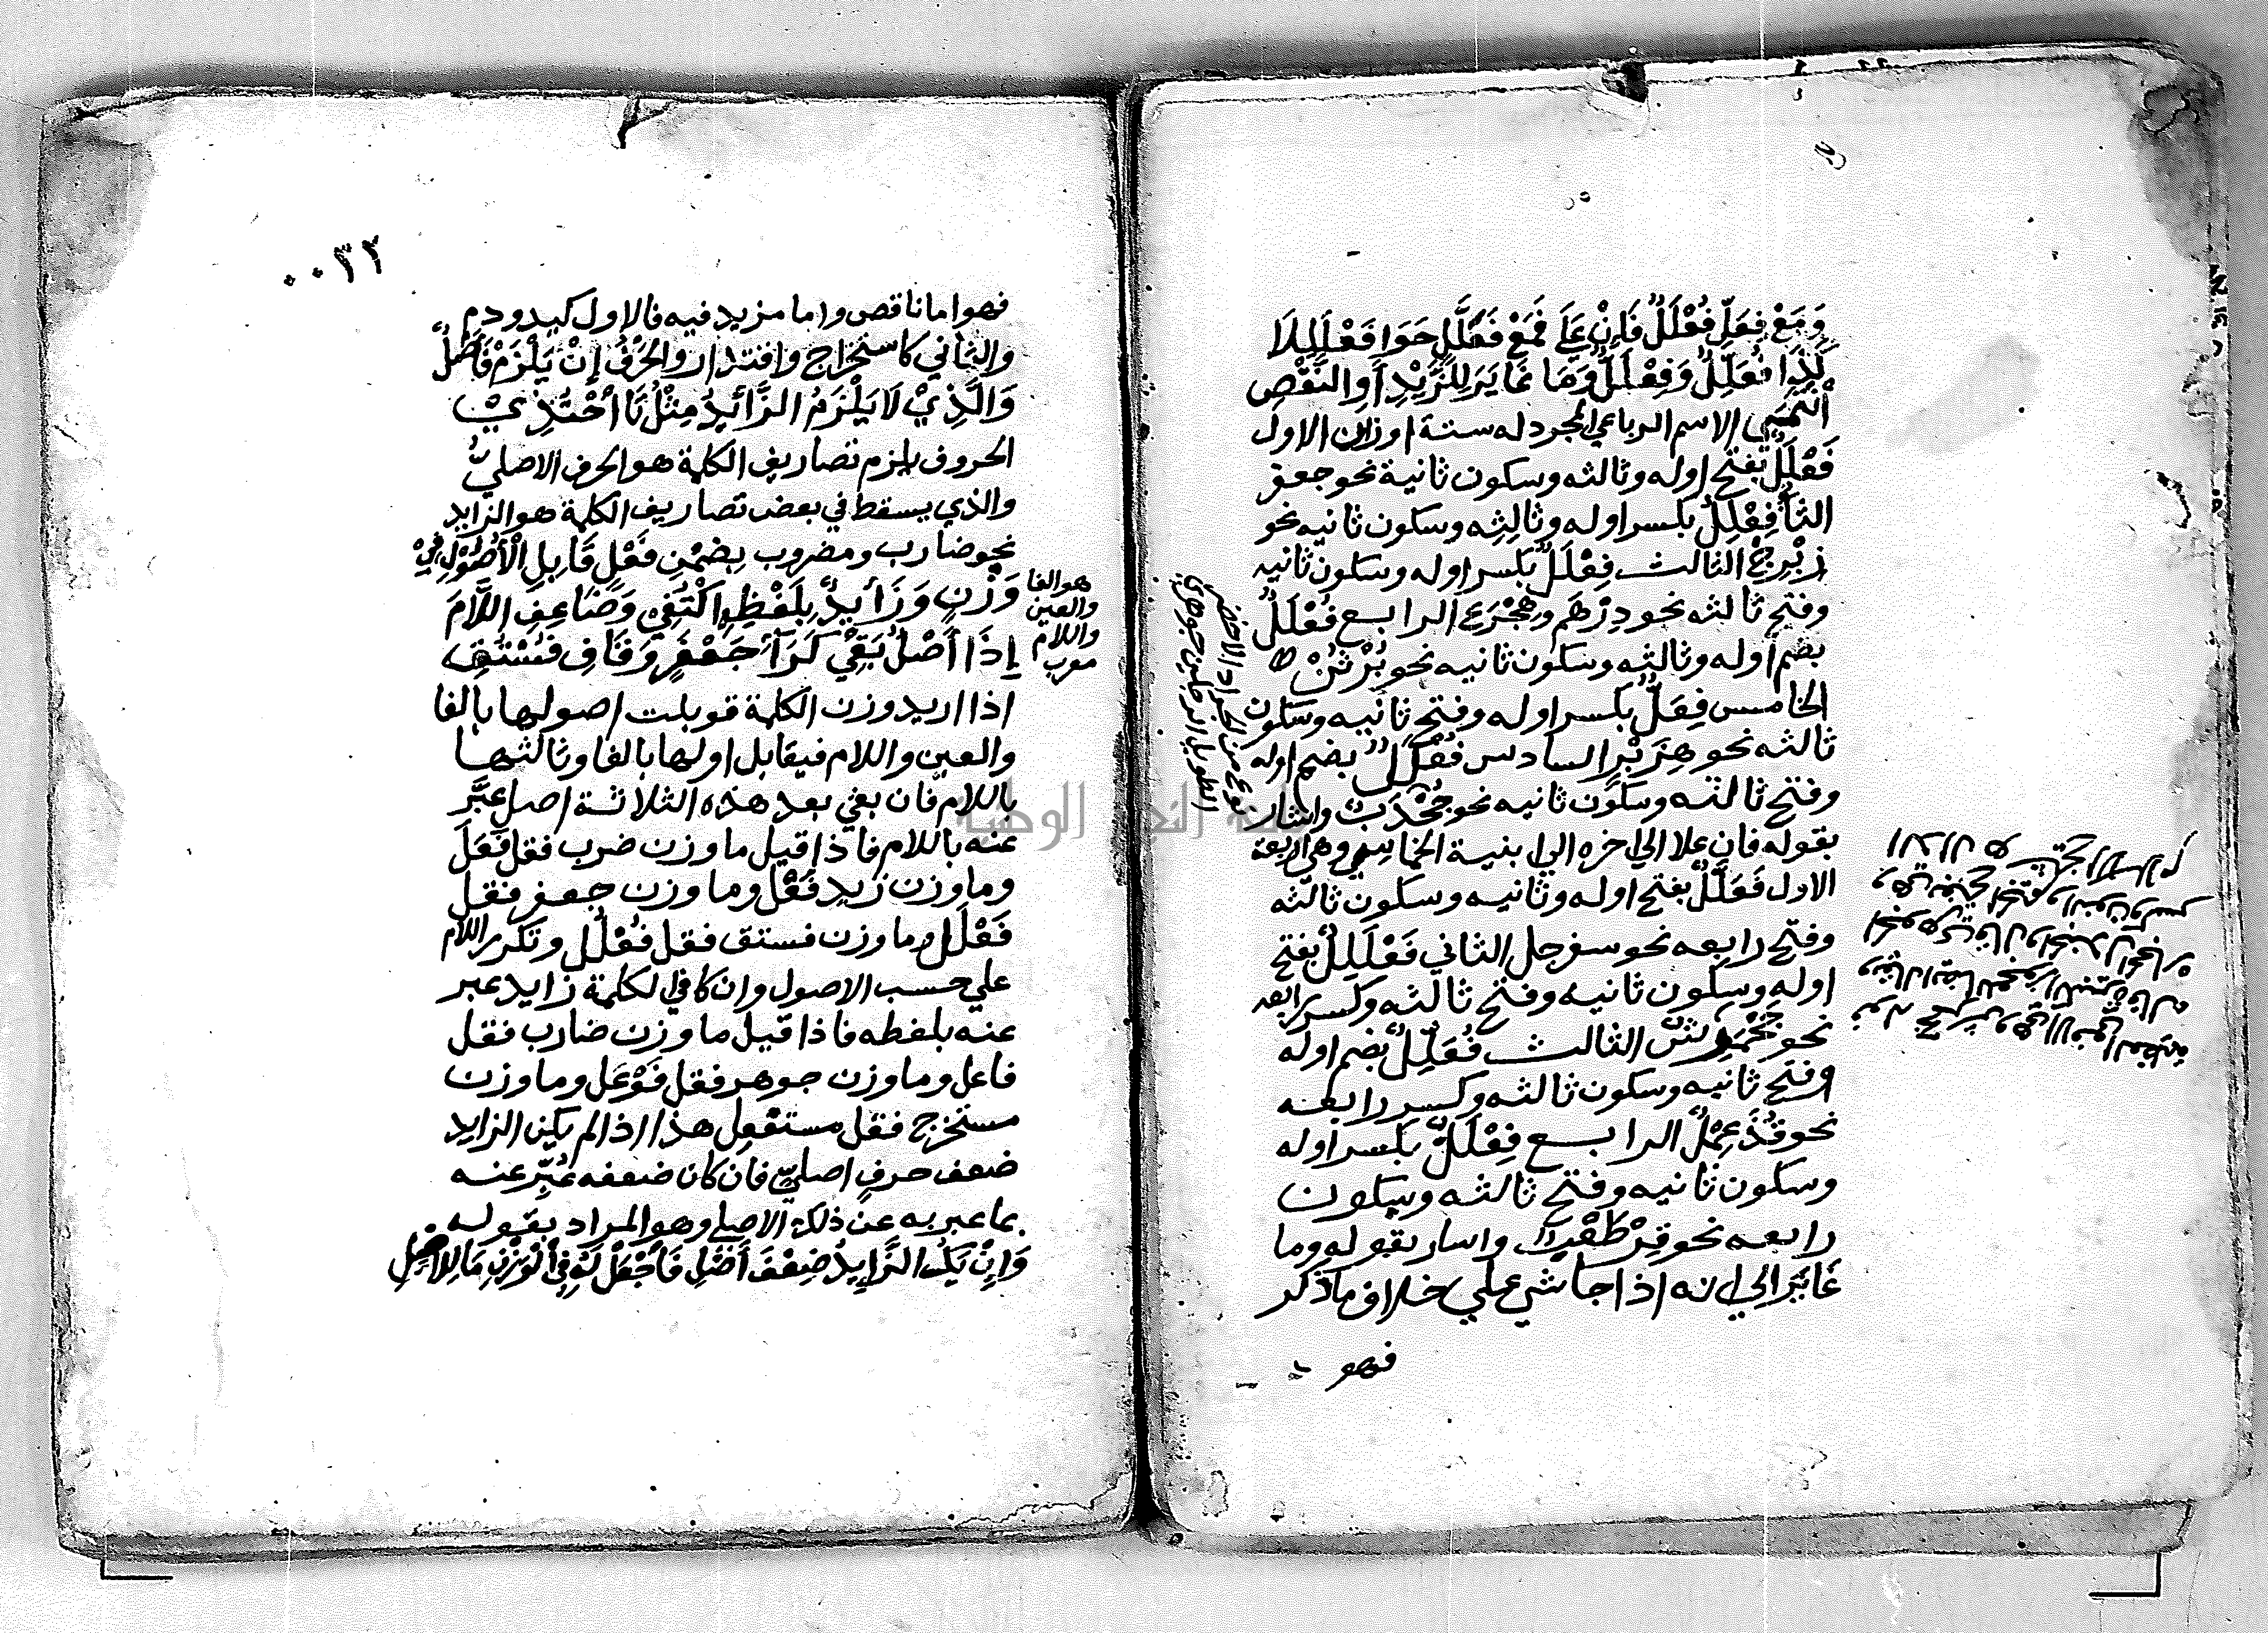 وَمَعْ فِعَلٍّ فُعْلَلٌ فَإِنْ عَلَا فَمَعْ فَعَلَّلٍ حَوَا فَعْلَلِلَا
كَذَا فُعَلِّلٌ وَفِعْلَلٌّ وَمَا غَايَرَ لِلزَّيْدِ أَوِ النَّقْصِ
انْتَمَى الاسم الرباعي المجرد له ستة اوزان الاول
فَعْلَلٌ بفتح اوله وثالثه وسكون ثانية نحو جعفر
الثا فِعْلِلٌ بكسر اوله وثالثه وسكون ثانيه نحو
زِبْرِجْ الثالث فِعْلَلٌ بكسر اوله وسكون ثانيه
وفتح ثالثه نحو دِرْهَم وهِجْرَع الرابع فُعْلُلٌ
بضم اوله وثالثه وسكون ثانيه نحو بُرْثُنْ
الخامس فِعَلٌّ بكسر اوله وفتح ثانيه وسكون
ثالثه نحو هِزَبْرٍ السادس فُعْلَلٌ بضم اوله
وفتح ثالثه وسكون ثانيه نحو جُخْدَبٌ واشار
بقوله فان علا الي اخره الي ابنية الخماسي وهي اربعة
الاول فَعَلَّلٌ بفتح اوله وثانيه وسكون ثالثه
وفتح رابعه نحو سفرجل الثاني فَعْلَلِلٌ بفتح
اوله وسكون ثانيه وفتح ثالثه وكسر رابعه
نحو جَحْمَرِشٌ الثالث فُعَلِّلٌ بضم اوله
وفتح ثانيه وسكون ثالثه وكسر رابعه
نحو قُذَعْمِلٌ الرابع فِعْلَلٌّ بكسر اوله
وسكون ثانيه وفتح ثالثه وسكون
رابعه نحو قِرْطَعْبٌ واشار بقوله وما
غَايَرَ الي انه اذا جا شي علي خلاف ما ذكر
فهو
٠٠٣٢
فهو اما ناقص واما مزيد فيه فالاول كيد ودم
والثاني كاستخراج واقتدار والْحَرْفُ إِنْ يَلْزَمْ فَأَصْلٌ
وَالَّذِيْ لَا يَلْزَمُ الزَّائِدُ مِثْلُ تَا احْتُذِيْ
الحروف يلزم تصاريف الكلمة هو الحرف الاصليُّ
والذي يسقط في بعض تصاريف الكلمة هو الزايد
نحو ضارب ومضروب بِضِمْنِ فِعْلٍ قَابِلِ الْأُصُوْلَ فِيْ
وَزْنٍ وَزَائِدٌ بِلَفْظِهِ اكْتُفِي وَضَاعِفِ اللَّامَ
إِذَا أَصْلٌ بَقِيْ كَرَاْ جَعْفَرٍ وَقَافِ فُسْتُقِ
هو الفا
والعين
واللام
معرب
اذا اريد وزن الكلمة قوبلت اصولها بالفا
والعين واللام فيقابل اولها بالفا وثالثها
باللام فان بقي بعد هذه الثلاثة اصل عبّر
عنه باللام فاذا قيل ما وزن ضرب فقل فَعَلَ
وما وزن زيد فَعْل وما وزن جعفر فقل
فَعْلَل وما وزن فستق فقل فُعْلُل وتكرر اللام
علي حسب الاصول وان كا في الكلمة زايد عبر
عنه بلفظه فاذا قيل ما وزن ضارب فقل
فاعل وما وزن جوهر فقل فَوْعَل وما وزن
مستخرج فقل مستفعل هذا اذا لم يكن الزايد
ضعف حرف اصليّ فان كان ضعفه عُبِّر عنه
بما عبر به عن ذلك الاصلي وهو المراد بقوله
وَإِنْ يَكُ الزَّايِدُ ضِعْفَ أَصْلِ فَاجْعَلْ لَهُ فِي الْوَزْنِ مَا لِلْأَصْلِ